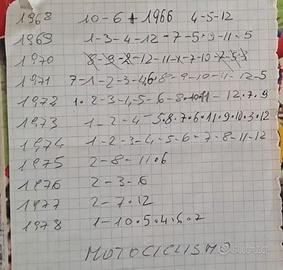 1968 10-6 + 1966 4-5-12
1969 1-3-4-12-7-5-3-11-5
1970 8-9-2-12-11-1-7-10-2-5-3
1971 7-1-2-3-4,6,8-9-10-11-12-5
1972 1.2-3-4-5-6-8-10-11-12.7.9
1973 1-2-4-5.8.7.6.11.9.10.3.12
1974 1-2-3-4-5-6-7-8-11-12
1975 2-8-11.6
1976 2-3-6
1977 2-7.12
1978 1-10.5.4.6.7
MOTOCICLISMO